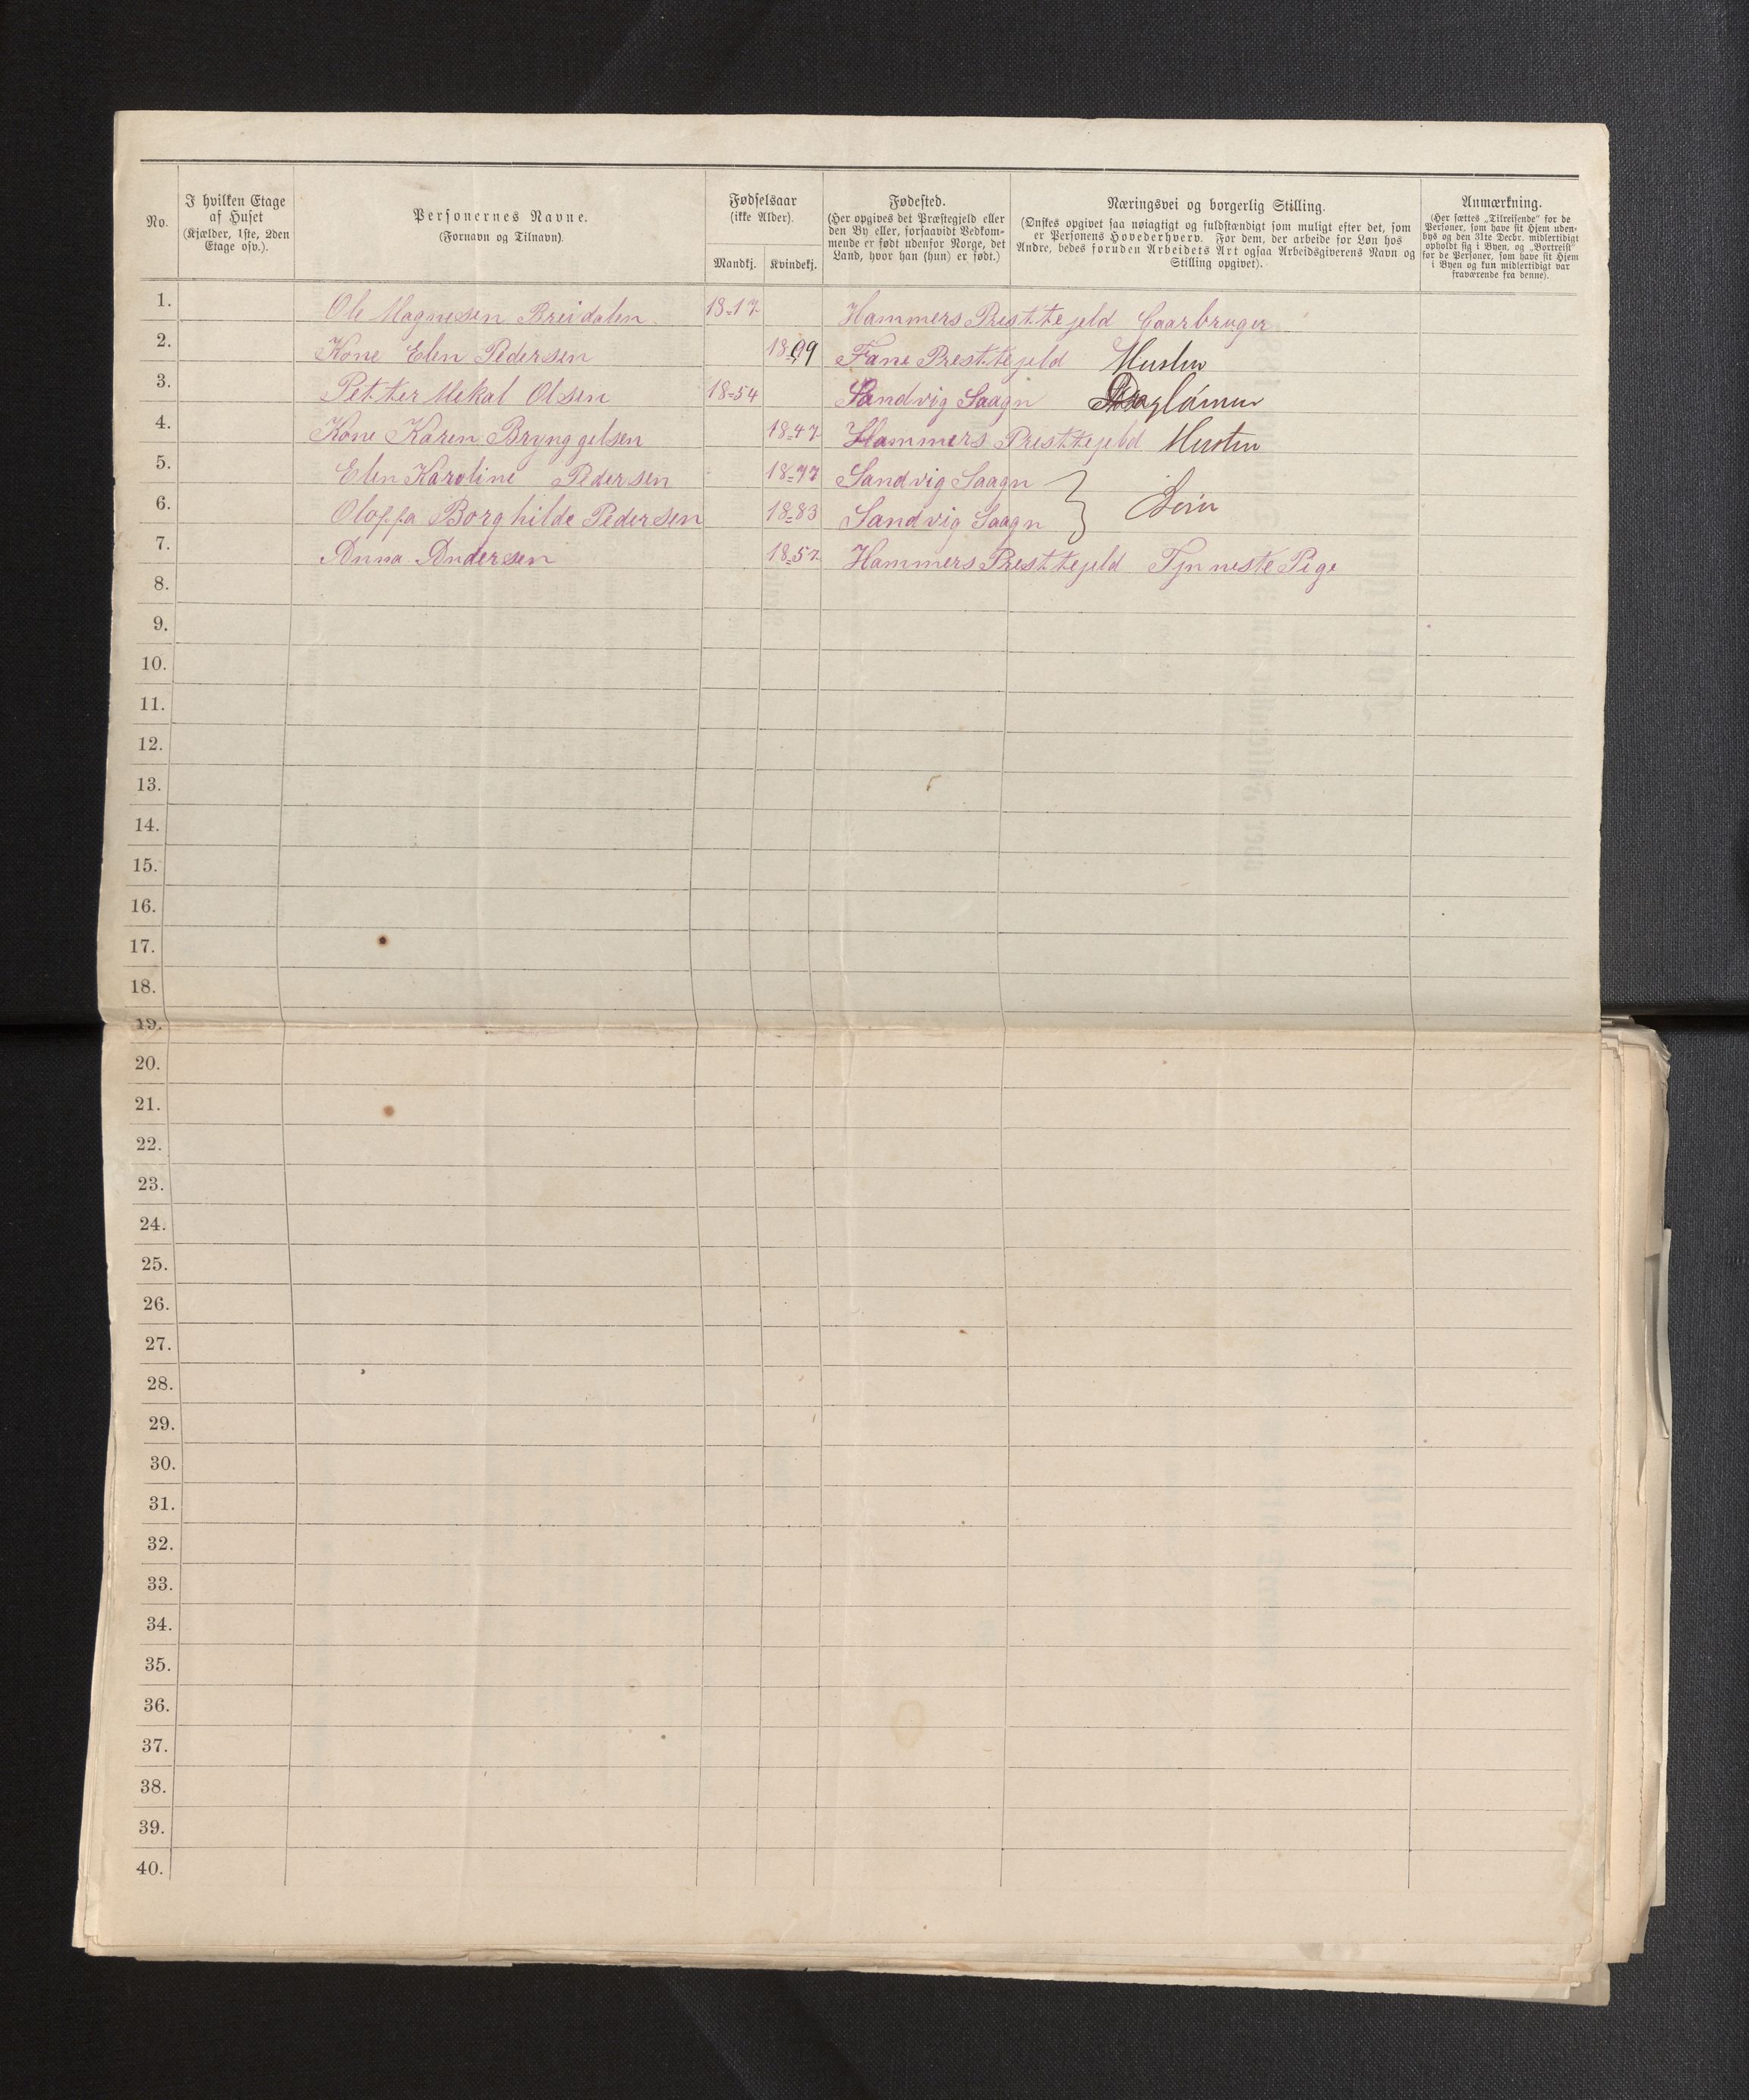 No.
I hvilken Etage af Huset (Kjælder, 1ste, 2den Etage osv.).
Personernes Navne. (Fornavn og Tilnavn).
Fødselsaar (ikke Alder).
Mandkj. Kvindekj.
Fødested. (Her opgives det Præstegjeld eller den By eller, forsaavidt Vedkommende er født udenfor Norge, det Land, hvor han (hun) er født.)
Næringsvei og borgerlig Stilling. (Ønskes opgivet saa nøiagtigt og fuldstændigt som muligt efter det, som er Personens Hovederhverv. For dem, der arbeide for Løn hos Andre, bedes foruden Arbeidets Art ogsaa Arbeidsgiverens Navn og Stilling opgivet).
Anmærkning. (Her sættes „Tilreisende" for de Personer, som have sit Hjem udenbys og den 31te Decbr. midlertidigt opholdt sig i Byen, og „Bortreist" for de Personer, som have sit Hjem i Byen og kun midlertidigt var fraværende fra denne).
1. Ole Magnesen Breidalen 18-17 Hammers Prest.tejeld Gaarbruger
2. Kone Elen Pedersen 18 99 Fane Prest.tejeld Husten
3. Petter Mekal Olsen 18-54 Sandvig Saagn
4. Kone Karen Brynggelsen 18-47 Hammers Prest.tejeld Husten
5. Elen Karoline Pedersen 18-77 Sandvig Saagn
6. Oloffa Borghilde Pedersen 18-83 Sandvig Saagn
7. Anna Andersen 18-57 Hammers Prest.tejeld Tjnneste Pige
8.
9.
10.
11.
12.
13.
14.
15.
16.
17.
18.
19.
20.
21.
22.
23.
24.
25.
26.
27.
28.
29.
30.
31.
32.
33.
34.
35.
36.
37.
38.
39.
40.